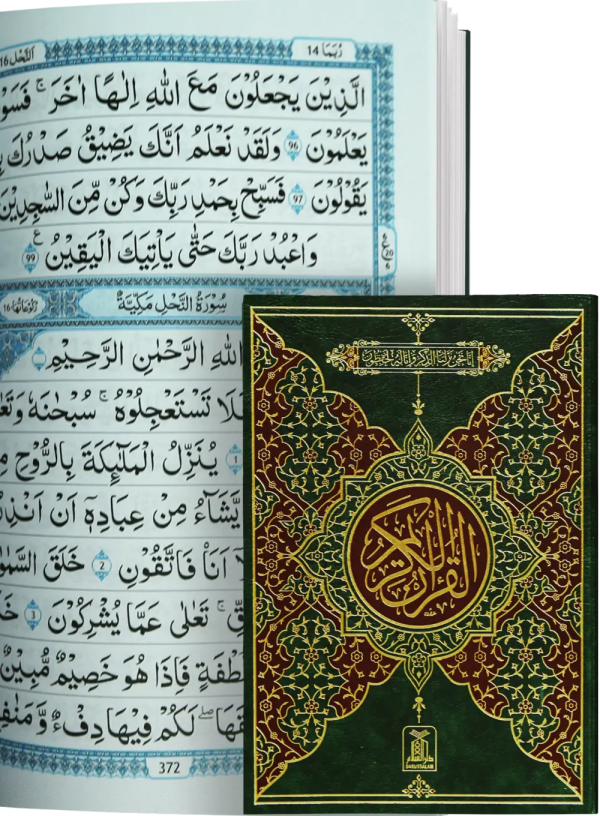 رُبَمَا 14
اَلنَّحْل 16
الَّذِيْنَ يَجْعَلُوْنَ مَعَ اللّٰهِ اِلٰهًا اٰخَرَ ۚ فَسَوْ
يَعْلَمُوْنَ 96 وَلَقَدْ نَعْلَمُ اَنَّكَ يَضِيْقُ صَدْرُكَ بِ
يَقُوْلُوْنَ 97 فَسَبِّحْ بِحَمْدِ رَبِّكَ وَكُنْ مِّنَ السّٰجِدِيْنَ
وَاعْبُدْ رَبَّكَ حَتّٰى يَاْتِيَكَ الْيَقِيْنُ 99
سُوْرَةُ النَّحْلِ مَكِّيَّةٌ
رُكُوْعَاتُهَا 16
اللّٰهِ الرَّحْمٰنِ الرَّحِيْمِ
فَلَا تَسْتَعْجِلُوْهُ ۚ سُبْحٰنَهٗ وَتَعٰ
1 يُنَزِّلُ الْمَلٰٓئِكَةَ بِالرُّوْحِ مِ
يَّشَآءُ مِنْ عِبَادِهٖٓ اَنْ اَنْذِرُ
اَنَا فَاتَّقُوْنِ 2 خَلَقَ السَّمٰوٰ
تَعٰلٰى عَمَّا يُشْرِكُوْنَ 3 خَ
نُّطْفَةٍ فَاِذَا هُوَ خَصِيْمٌ مُّبِيْنٌ
لَكُمْ فِيْهَا دِفْءٌ وَّمَنٰفِ
372
إنا نحن نزلنا الذكر وإنا له لحافظون
القرآن الكريم
دار السلام
DARUSSALAM